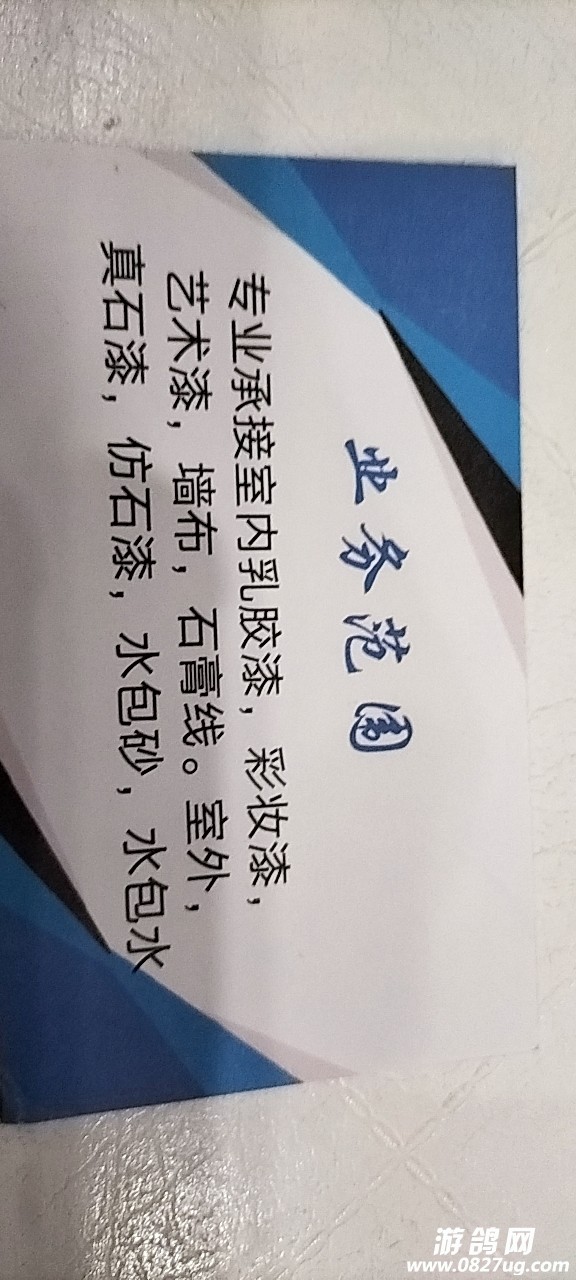 业务范围
专业承接室内乳胶漆，彩妆漆，
艺术漆，墙布，石膏线。室外，
真石漆，仿石漆，水包砂，水包水
游鸽网
www.0827ug.com